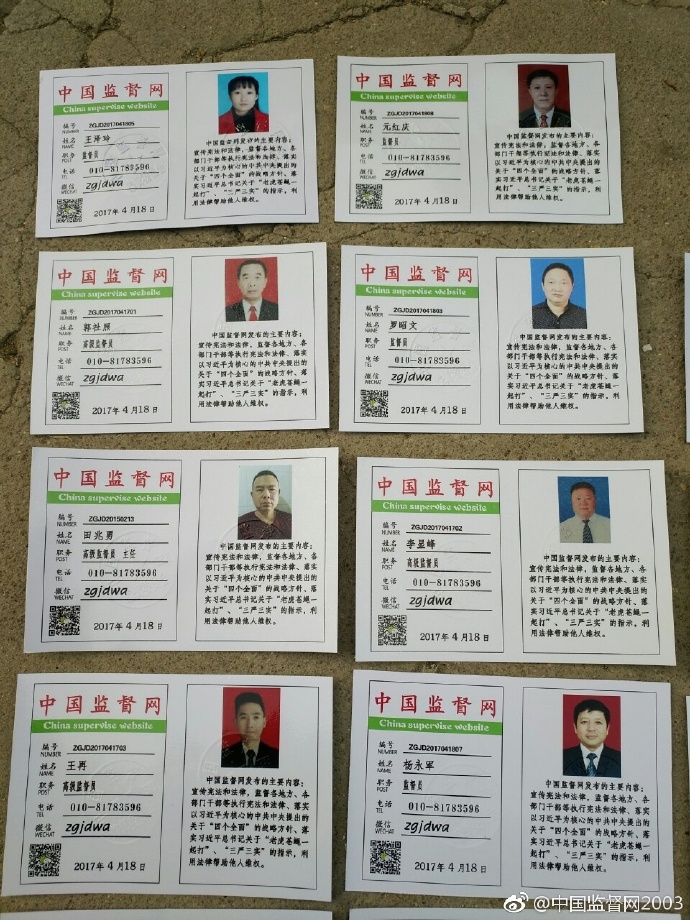 中国监督网
China supervise website
编号 NUMBER ZGJD2017041805
姓名 NAME 王泽玲
职务 POST 监督员
电话 TEL 010-81783596
微信 WECHAT zgjdwa
2017年4月18日
中国监督网发布的主要内容:
宣传宪法和法律,监督各地方、各
部门干部等执行宪法和法律、落实
以习近平为核心的中共中央提出的
关于“四个全面”的战略方针、落
实习近平总书记关于“老虎苍蝇一
起打”、“三严三实”的指示,利
用法律帮助他人维权。
中国监督网
China supervise website
编号 NUMBER ZGJD2017041808
姓名 NAME 元红庆
职务 POST 监督员
电话 TEL 010-81783596
微信 WECHAT zgjdwa
2017年4月18日
中国监督网发布的主要内容:
宣传宪法和法律,监督各地方、各
部门干部等执行宪法和法律、落实
以习近平为核心的中共中央提出的
关于“四个全面”的战略方针、落
实习近平总书记关于“老虎苍蝇一
起打”、“三严三实”的指示,利
用法律帮助他人维权。
中国监督网
China supervise website
编号 NUMBER ZGJD2017041701
姓名 NAME 郭社照
职务 POST 高级监督员
电话 TEL 010-81783596
微信 WECHAT zgjdwa
2017年4月18日
中国监督网发布的主要内容:
宣传宪法和法律,监督各地方、各
部门干部等执行宪法和法律、落实
以习近平为核心的中共中央提出的
关于“四个全面”的战略方针、落
实习近平总书记关于“老虎苍蝇一
起打”、“三严三实”的指示,利
用法律帮助他人维权。
中国监督网
China supervise website
编号 NUMBER ZGJD2017041803
姓名 NAME 罗昭文
职务 POST 监督员
电话 TEL 010-81783596
微信 WECHAT zgjdwa
2017年4月18日
中国监督网发布的主要内容:
宣传宪法和法律,监督各地方、各
部门干部等执行宪法和法律、落实
以习近平为核心的中共中央提出的
关于“四个全面”的战略方针、落
实习近平总书记关于“老虎苍蝇一
起打”、“三严三实”的指示,利
用法律帮助他人维权。
中国监督网
China supervise website
编号 NUMBER ZGJD20150213
姓名 NAME 田兆勇
职务 POST 高级监督员 主任
电话 TEL 010-81783596
微信 WECHAT zgjdwa
2017年4月18日
中国监督网发布的主要内容:
宣传宪法和法律,监督各地方、各
部门干部等执行宪法和法律、落实
以习近平为核心的中共中央提出的
关于“四个全面”的战略方针、落
实习近平总书记关于“老虎苍蝇一
起打”、“三严三实”的指示,利
用法律帮助他人维权。
中国监督网
China supervise website
编号 NUMBER ZGJD2017041702
姓名 NAME 李显峰
职务 POST 高级监督员
电话 TEL 010-81783596
微信 WECHAT zgjdwa
2017年4月18日
中国监督网发布的主要内容:
宣传宪法和法律,监督各地方、各
部门干部等执行宪法和法律、落实
以习近平为核心的中共中央提出的
关于“四个全面”的战略方针、落
实习近平总书记关于“老虎苍蝇一
起打”、“三严三实”的指示,利
用法律帮助他人维权。
中国监督网
China supervise website
编号 NUMBER ZGJD2017041703
姓名 NAME 王再
职务 POST 高级监督员
电话 TEL 010-81783596
微信 WECHAT zgjdwa
2017年4月18日
中国监督网发布的主要内容:
宣传宪法和法律,监督各地方、各
部门干部等执行宪法和法律、落实
以习近平为核心的中共中央提出的
关于“四个全面”的战略方针、落
实习近平总书记关于“老虎苍蝇一
起打”、“三严三实”的指示,利
用法律帮助他人维权。
中国监督网
China supervise website
编号 NUMBER ZGJD2017041807
姓名 NAME 杨永军
职务 POST 监督员
电话 TEL 010-81783596
微信 WECHAT zgjdwa
2017年4月18日
中国监督网发布的主要内容:
宣传宪法和法律,监督各地方、各
部门干部等执行宪法和法律、落实
以习近平为核心的中共中央提出的
关于“四个全面”的战略方针、落
实习近平总书记关于“老虎苍蝇一
起打”、“三严三实”的指示,利
用法律帮助他人维权。
@中国监督网2003